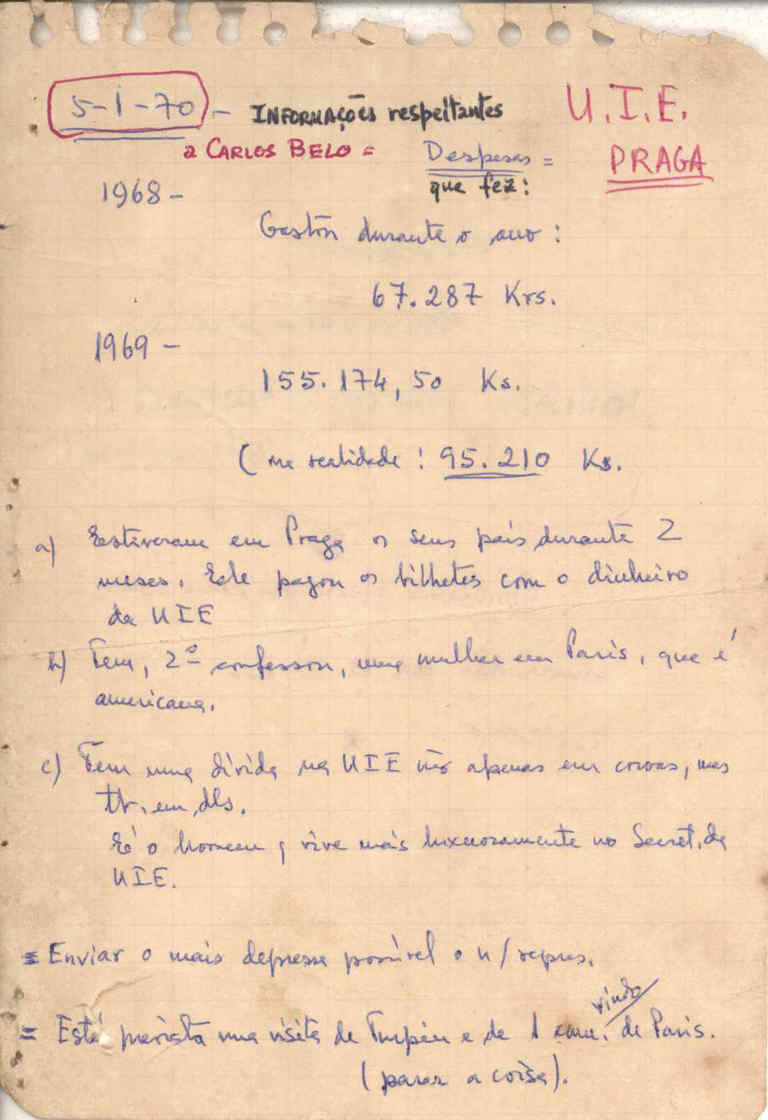 5-1-70 - INFORMAÇÕES respeitantes U.I.E.
a CARLOS BELO = Despesas = PRAGA
que fez:
1968 -
Gastou durante o ano :
67.287 Krs.
1969 -
155.174,50 Ks.
( na realidade : 95.210 Ks.
a) Estiveram em Praga os seus pais durante 2
meses. Ele pagou os bilhetes com o dinheiro
da UIE
b) Tem, 2º confessou, uma mulher em Paris, que é
americana.
c) Tem uma dívida na UIE não apenas em coroas, mas
tb. em dls.
É o homem q vive mais luxuosamente no Secret. da
UIE.
= Enviar o mais depressa possível o n/repres.
= Está prevista uma visita de e de 1 cam. vindo de Paris.
(parar a coisa).